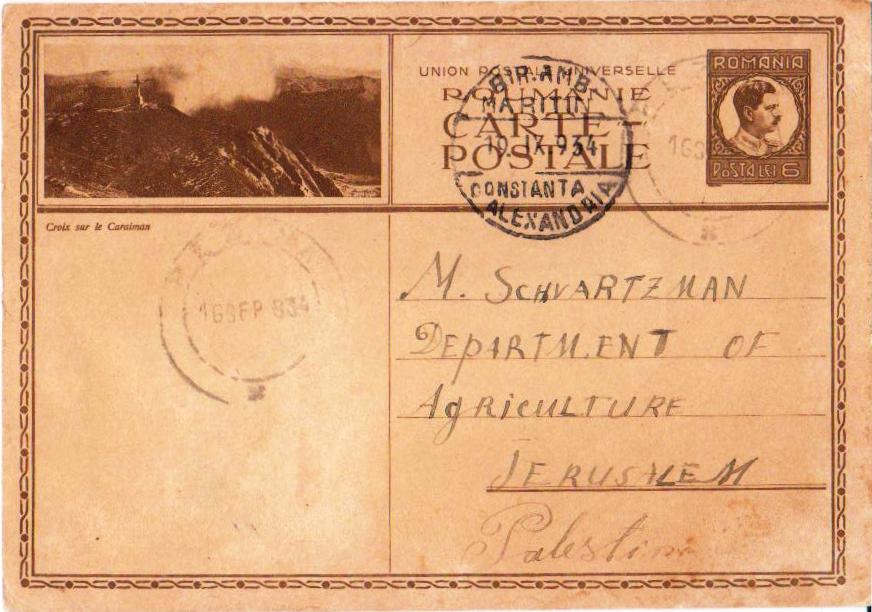 UNION POSTALE UNIVERSELLE
ROUMANIE
CARTE-
POSTALE
ROMANIA
POSTA LEI 6
BIR. AMB.
MARITIM
10. IX. 934
CONSTANTA
ALEXANDRIA
16S
Croix sur le Caraiman
16SEP 834
M. SCHVARTZMAN
DEPARTMENT OF
AgRiCULTURE
JERUSALEM
Palestina